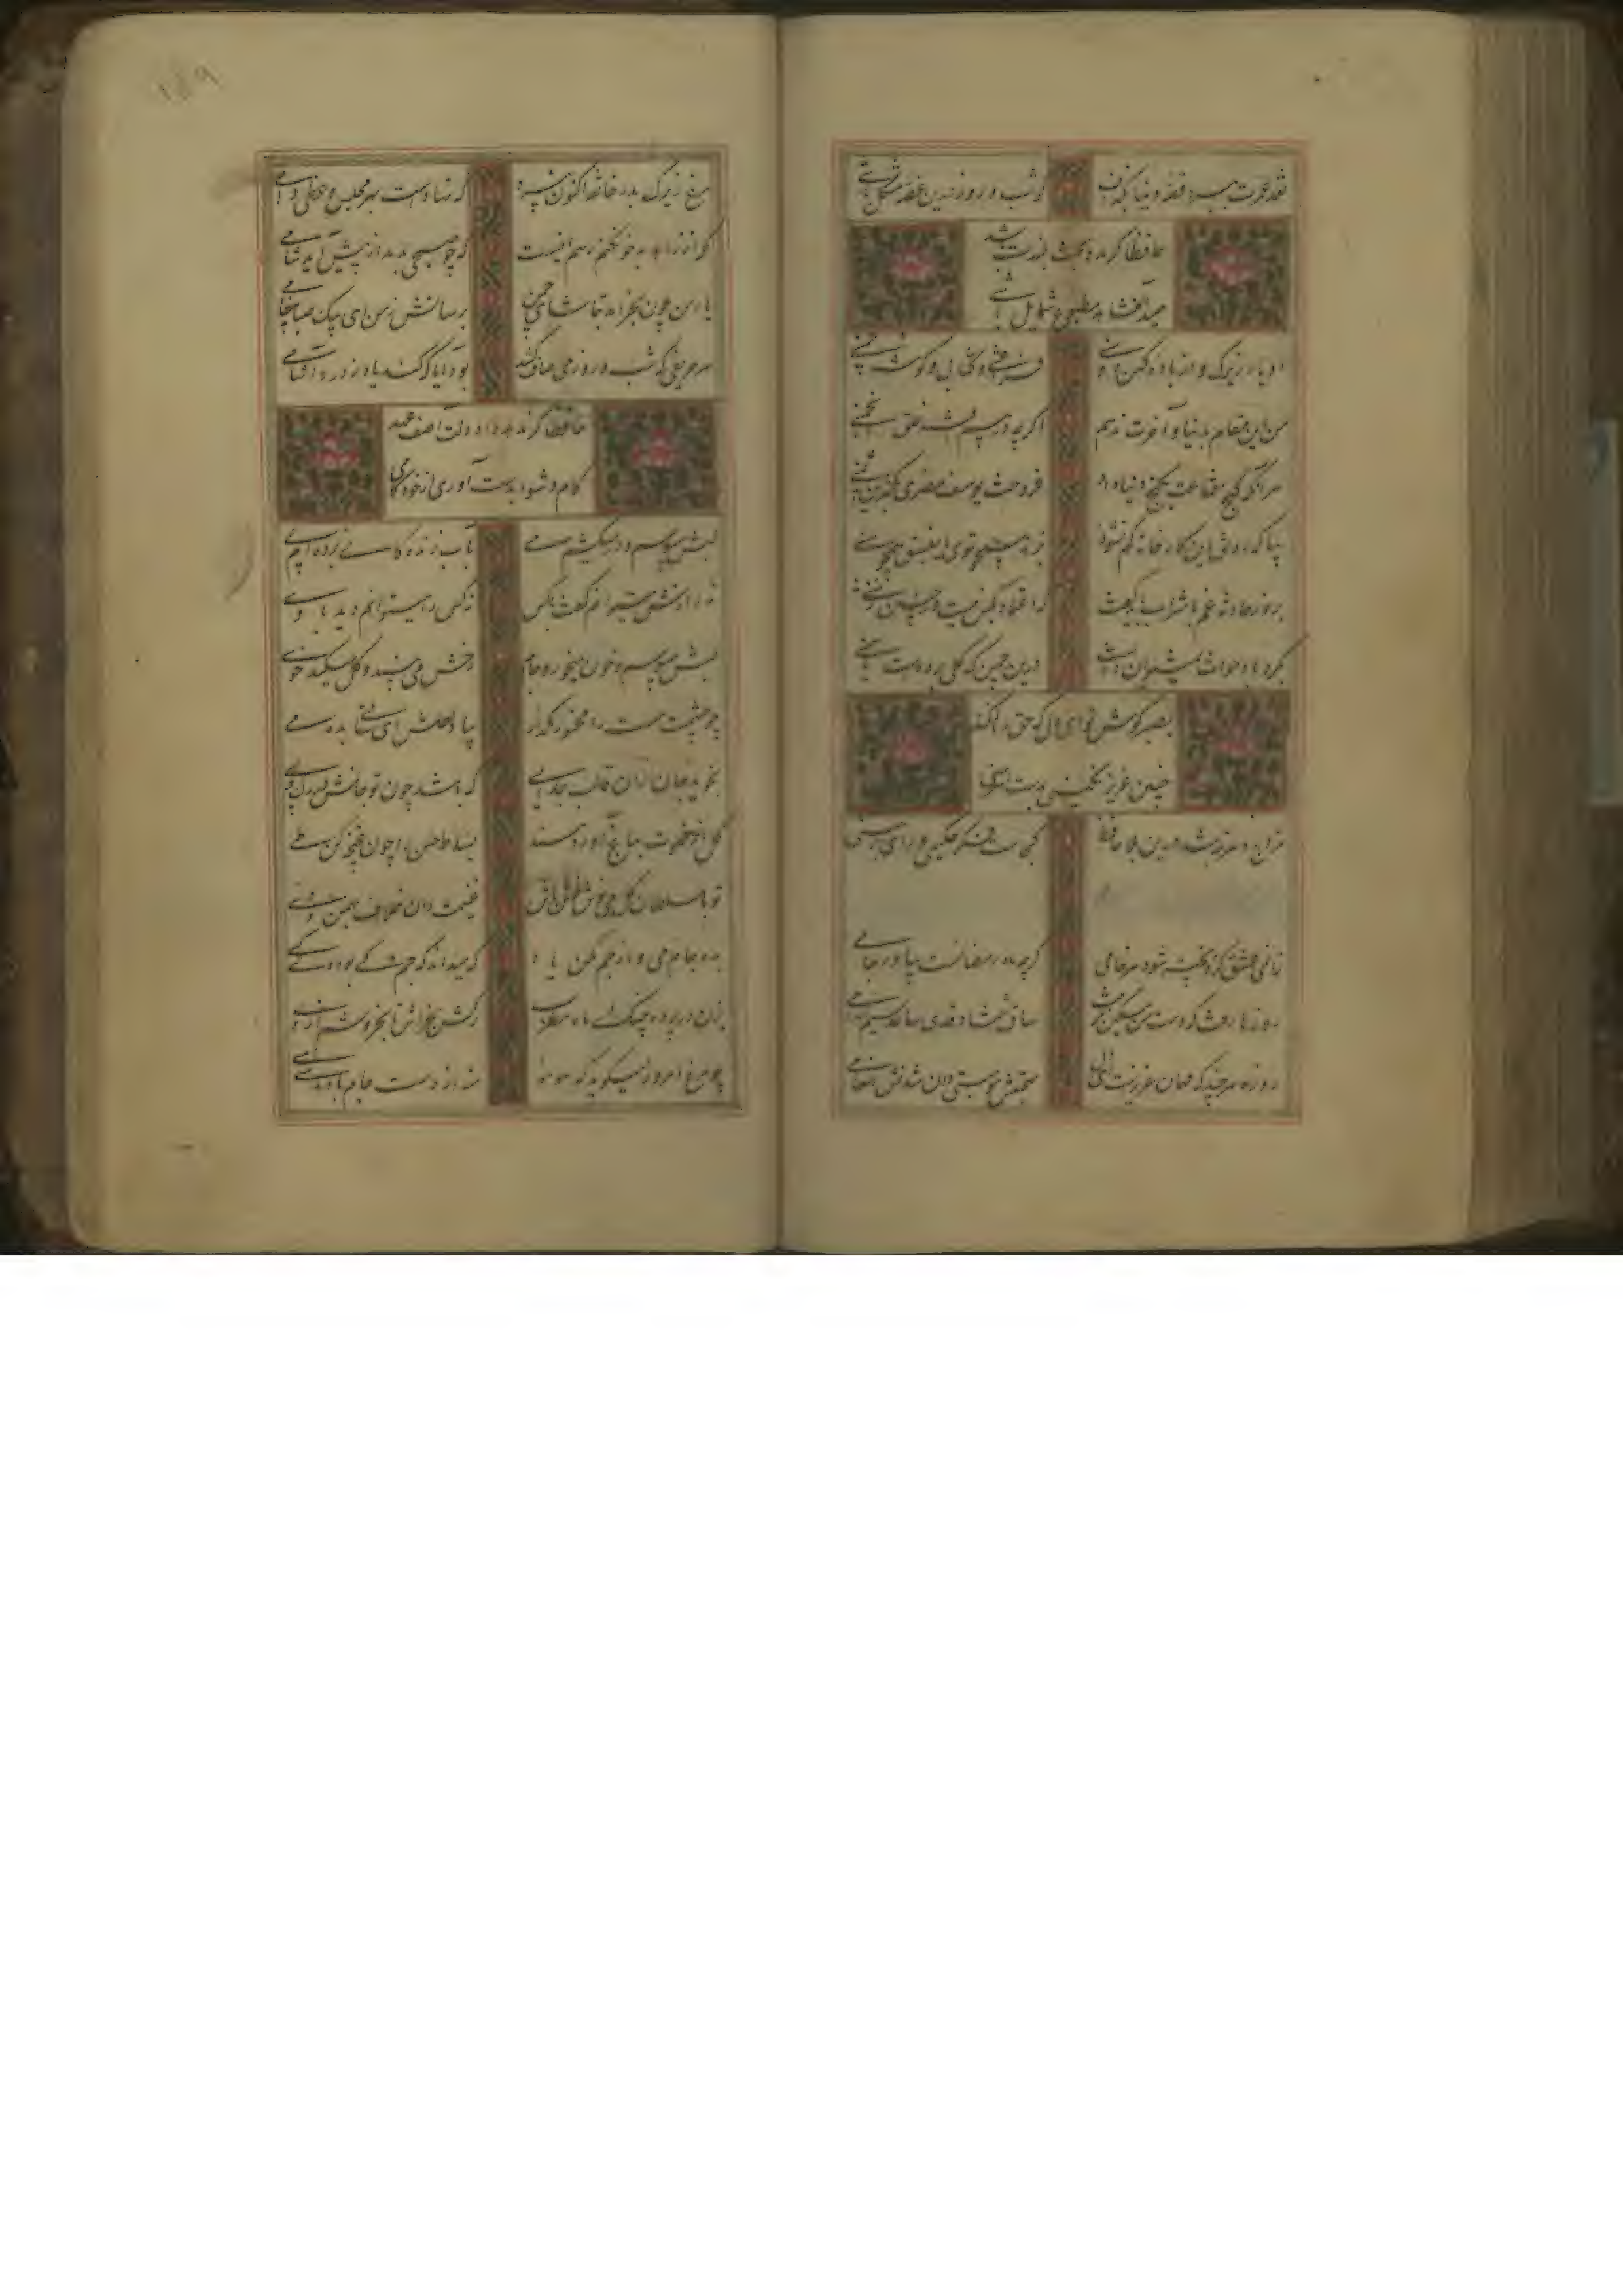 نقد عمرت ببرد قصه دنیا بگزاف
گر شب و روز درین قصه مشکل باشی
حافظا گر مدد بخت بلندت باشد
صید آن شاهد مطبوع شمایل باشی
دو یار زیرک و از باده کهن دو منی
فراغتی و کتابی و گوشه چمنی
من این مقام بدنیا و آخرت ندهم
اگرچه در پیم افتند خلق انجمنی
هر آنکه کنج قناعت بگنج دنیا داد
فروخت یوسف مصری بکمترین ثمنی
بیا که رونق این کارخانه کم نشود
بزهد همچو توی یا بفسق همچو منی
بروز حادثه غم با شراب باید گفت
که اعتماد بکس نیست در چنین زمنی
ز گرد باد حوادث نمیتوان دیدن
درین چمن که گلی بوده است یا سمنی
بصبر کوش تو ای دل که حق رها نکند
چنین عزیز نگینی بدست اهرمنی
مزاج دهر تبه شد درین بلا حافظ
کجاست فکر حکیمی و رای برهمنی
زان می عشق کزو پخته شود هر خامی
گرچه ماه رمضانست بیاور جامی
روزها رفت که دست من مسکین نگرفت
ساق شمشاد قدی ساعد سیم اندامی
روزه هرچند که مهمان عزیزست ای دل
صحبتش موهبتی دان و شدنش انعامی
مرغ زیرک بدر خانقه اکنون نپرد
که نهادست بهر مجلس وعظی دامی
گله از زاهد بدخو نکنم رسم اینست
که چو صبحی بدمد از پیش آید شامی
یار من چون بخرامد بتماشای چمن
برسانش ز من ای پیک صبا پیغامی
هر حریفی که شب و روز می صاف کشد
بود آیا که کند یاد ز دردآشامی
حافظا گر ندهد داد دلت آصف عهد
کام دشوار بدست آوری از خودکامی
لبش میبوسم و در میکشم می
بآب زندگانی برده ام پی
نه رازش میتوانم گفت با کس
نه کس را میتوانم دید با وی
لبش میبوسد و خون میخورد جام
رخش می بیند و گل میکند خوی
چو چشمت مست را مخمور مگذار
بیاد لعلش ای ساقی بده می
نجوید جان از آن قالب جدایی
که باشد خون تو جامش در رگ و پی
گل از خلوت بباغ آورد مسند
بساط حسن را چون غنچه کن طی
غنیمت دان خلاف بهمن و دی
بده جام می و از جم مکن یاد
که میداند که جم کی بود و کی کی
بزن در پرده چنگ ای ماه مطرب
رگش بخراش تا بخروشم از وی
چو مرغ امروز میگوید که هوهو
منه از دست جام باده هی هی